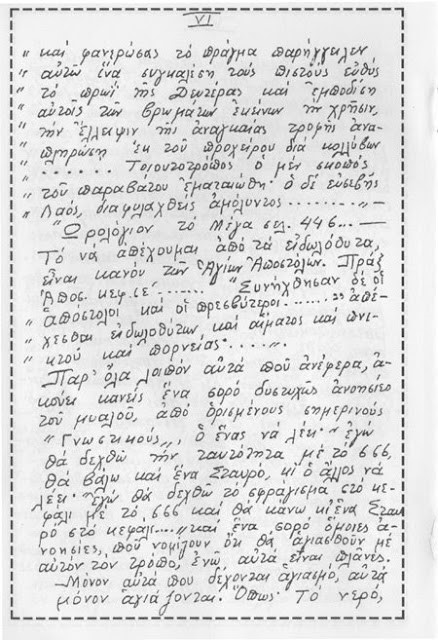 VI
" καί φανερώσας τό πρᾶγμα παρήγγειλεν
" αὐτῶ ἵνα συγκαλέση τούς πιστούς εὐθύς
" τό πρωΐ τῆς Δευτέρας καί ἐμποδίση
" αὐτούς τῶν βρωμάτων ἐκείνων τήν χρῆσιν,
" τήν ἔλλειψιν τῆς ἀναγκαίας τροφῆς ἀνα-
" πληρώση ἐκ τοῦ προχείρου διά κολλύβων
" ...... Τοιουτοτρόπως ὁ μέν σκοπός
" τοῦ παραβάτου ἐματαιώθη· ὁ δέ εὐσεβής
" Λαός, διαφυλαχθείς ἀμόλυντος ........„—
"Ὡρολόγιον τό Μέγα σελ. 446...—
Τό νά ἀπέχουμαι ἀπό τά εἰδωλόθυτα,
εἶναι κανόν τῶν Ἁγίων Ἀποστόλων. Πράξ
Ἀποσ. κεφ. ιε΄....... "Συνήχθησαν δέ οἱ
" ἀπόστολοι καί οἱ πρεσβύτεροι........„ ἀπέ-
" χεσθαι εἰδωλοθύτων καί αἵματος καί πνι-
" κτοῦ καί πορνείας.....„.
Παρ' ὅλα λοιπόν αὐτά πού ἀνέφερα, ἀ-
κούει κανείς ἕνα σορό δυστυχῶς ἀνοησίες
τοῦ μυαλοῦ, ἀπό ὁρισμένους σημερινούς
"Γνωστικούς„, ὁ ἕνας νά λέει· "ἐγώ
θά δεχθῶ τήν ταυτότητα μέ τό 666,
θά βάλω καί ἕνα Σταυρό, κι ὁ ἄλλος νά
λέει· "ἐγώ θά δεχθῶ τό σφράγισμα στό κε-
φάλι μέ τό 666 καί θά κάνω κι ἕνα Σταυ
ρό στό κεφάλι....„ καί ἕνα σορό ὅμοιες ἀ-
νοησίες, πού νομίζουν ὅτι θά ἁγιασθοῦν μέ
αὐτόν τόν τρόπο, ἐνῶ αὐτά εἶναι πλάνες.
—Μόνον αὐτά πού δέχονται ἁγιασμό, αὐτά
μόνον ἁγιάζονται. Ὅπως· Τό νερό,